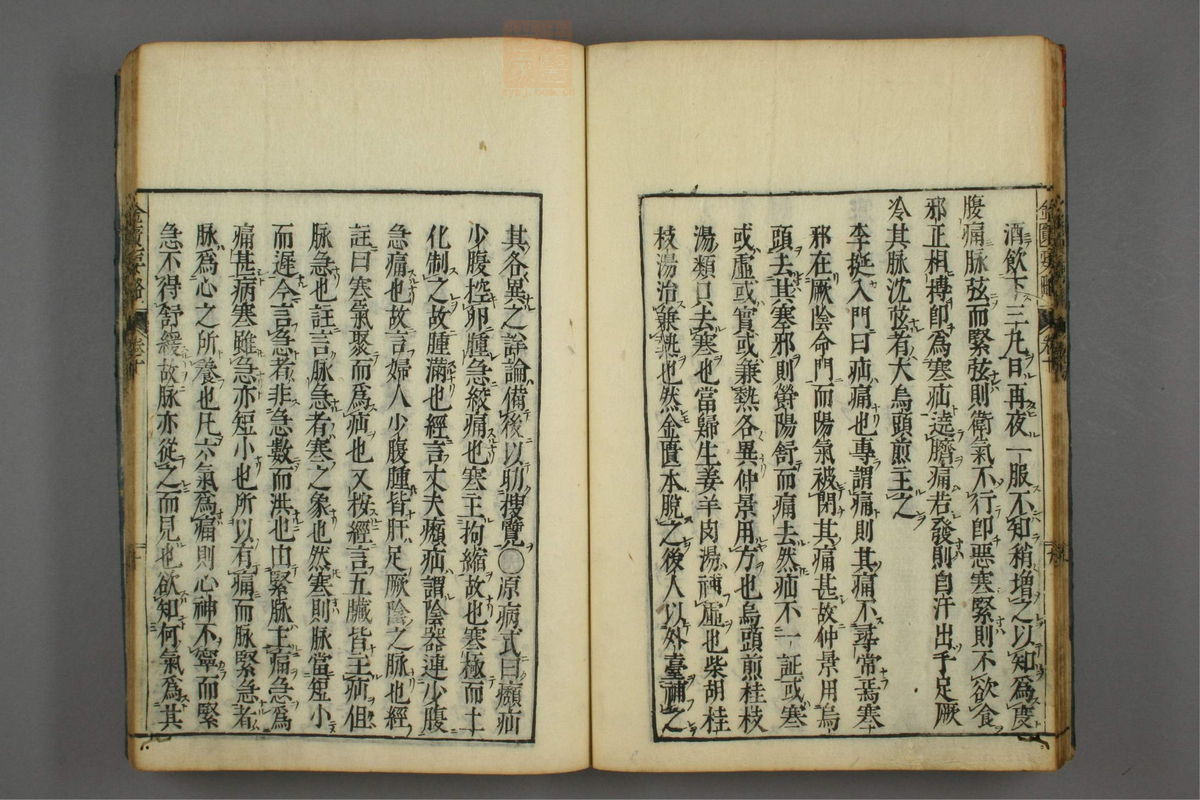 酒飲下三丸日再夜一服不知稍增之以知爲度
腹痛脉弦而緊弦則衛氣不行即惡寒緊則不欲食
邪正相搏即爲寒疝遶臍痛若發則自汗出手足厥
冷其脉沈弦者大烏頭煎主之
李挻入門曰疝痛也專謂痛則其痛不尋常焉寒
邪在厥陰命門而陽氣被閉其痛甚故仲景用烏
頭去其寒邪則欝陽舒而痛去然疝不一証或寒
或虛或實或兼熱各異仲景用方也烏頭煎桂枝
湯類只去寒也當歸生姜羊肉湯補虛也柴胡桂
枝湯治兼熱也然金匱本脫之後人以外臺補之
其各異之詳論備後以助搜覽〇原病式曰㿗疝
少腹控卵腫急絞痛也寒主拘縮故也寒極而土
化制之故腫滿也經言丈夫㿗疝謂陰器連少腹
急痛也故言婦人少腹腫皆肝足厥陰之脉也經
註曰寒氣聚而爲疝也又按經言五臟皆主疝但
脉急也註言脉急者寒之象也然寒則脉當短小
而遲今言急者非急數而洪也由緊脉主痛急爲
痛甚病寒雖急亦短小也所以有痛而脉緊急者
脉爲心之所養也凡六氣爲痛則心神不寧而緊
急不得舒緩故脉亦從之而見也欲知何氣爲其